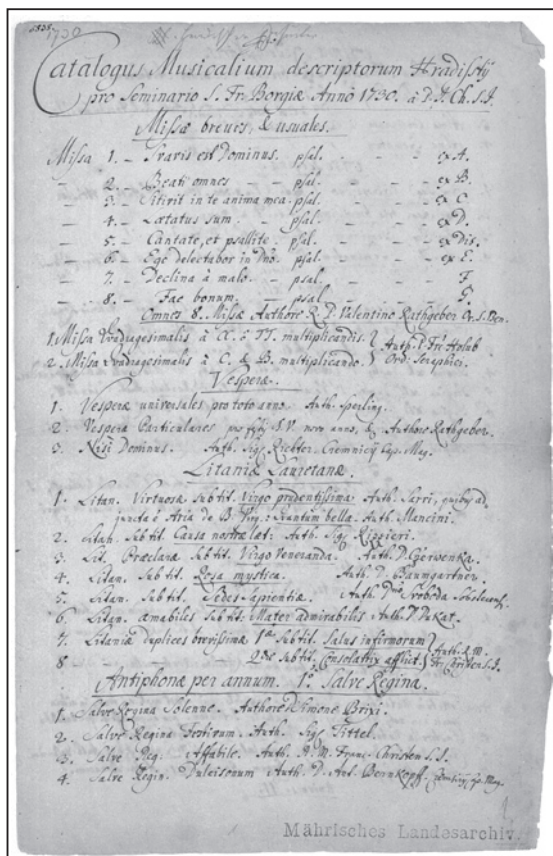 1730
Catalogus Musicalium descriptorum Hradisstÿ
pro Seminario S. Fr. Borgiæ Anno 1730. à P. F. Ch. S. I.
Missæ breves, & usuales.
Missa 1. – Suavis est Dominus. psal. – – – ex A.
– 2. – Beati omnes – – psal. – – – ex B.
– 3. – Sitivit in te anima mea. psal. – – – ex C
– 4. – Lætatus sum. – psal. – – – ex D.
– 5. – Cantate, et psallite. psal. – – – ex Dis.
– 6. – Ego delectabor in Dno. psal. – – – ex E.
– 7. – Declina à malo. – psal. – – – F
– 8. – Fac bonum. – psal. – – – G.
Omnes 8. Missæ Authore R. P. Valentino Rathgeber Or. S. Ben.
1. Missa Quadragesimalis à multiplicandis. Auth. Holub
2. Missa Quadragesimalis à C. & B. multiplicando. Ord. Seraphici.
Vesperæ.
1. Vesperæ universales pro toto anno. Auth. Sperling.
2. Vesperæ Particulares pro anno, & Authore Rathgeber.
3. Nisi Dominus. Auth. Sig. Richter Cap. Mag.
Litaniæ Lauretanæ.
1. Litan. Virtuosæ sub tit. Virgo prudentissima Auth. Sarri, quibus ad
juncta è Aria de B. Virg.: Quantum bella. Auth. Mancini.
2. Litan. sub tit. Causa nostræ læt: Auth. Sig. Rippieri.
3. Lit. Præclaræ sub tit. Virgo Veneranda. Auth. D. Czerwenka.
4. Litan. Sub tit. Rosa mystica. Auth. D. Baumgartner.
5. Litan. sub tit. Sedes Sapientiæ. Auth. Dno Svoboda
6. Litan. amabiles sub tit: Mater admirabilis Auth. D. Dukat.
7. Litaniæ duplices brevissimæ 1mæ Sub tit. Salus infirmorum Auth. R. M.
8 2dæ sub tit. Consolatrix afflict. Fr. Christen S. I.
Antiphonæ per annum. 1o. Salve Regina.
1. Salve Regina Solenne. Authore Simone Brixi.
2. Salve Regina Festivum. Auth. Sig. Tittel.
3. Salve Reg. Affabile. Auth. R. M. Franc. Christen S. I.
4. Salve Regin. Dulcisonum Auth. D. Ant. Bernkopff.
Mährisches Landesarchiv.